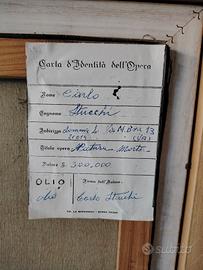 Carta d'Identità dell'Opera
Nome Carlo
Cognome Stucchi
Indirizzo
Titolo opera Natura Morta
Valore £ 300,000
OLIO Firma dell'Autore
olio Carlo Stucchi
Subito